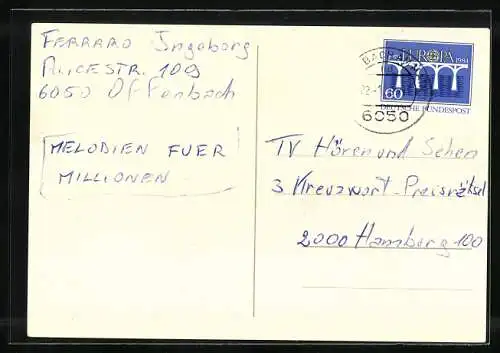 FERRARO Ingeborg
ALICESTR. 109
6050 Offenbach
MELODIEN FUER
MILLIONEN
EUROPA 1984
60
DEUTSCHE BUNDESPOST
6050
TV Hören und Sehen
3 Kreuzwort-Preisrätsel
2000 Hamburg 100